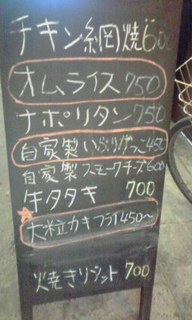 チキン網焼600
オムライス750
ナポリタン750
自家製いぶりがっこ450
自家製スモークチーズ600
牛タタキ 700
大粒カキフライ450〜
火焼きリゾット 700